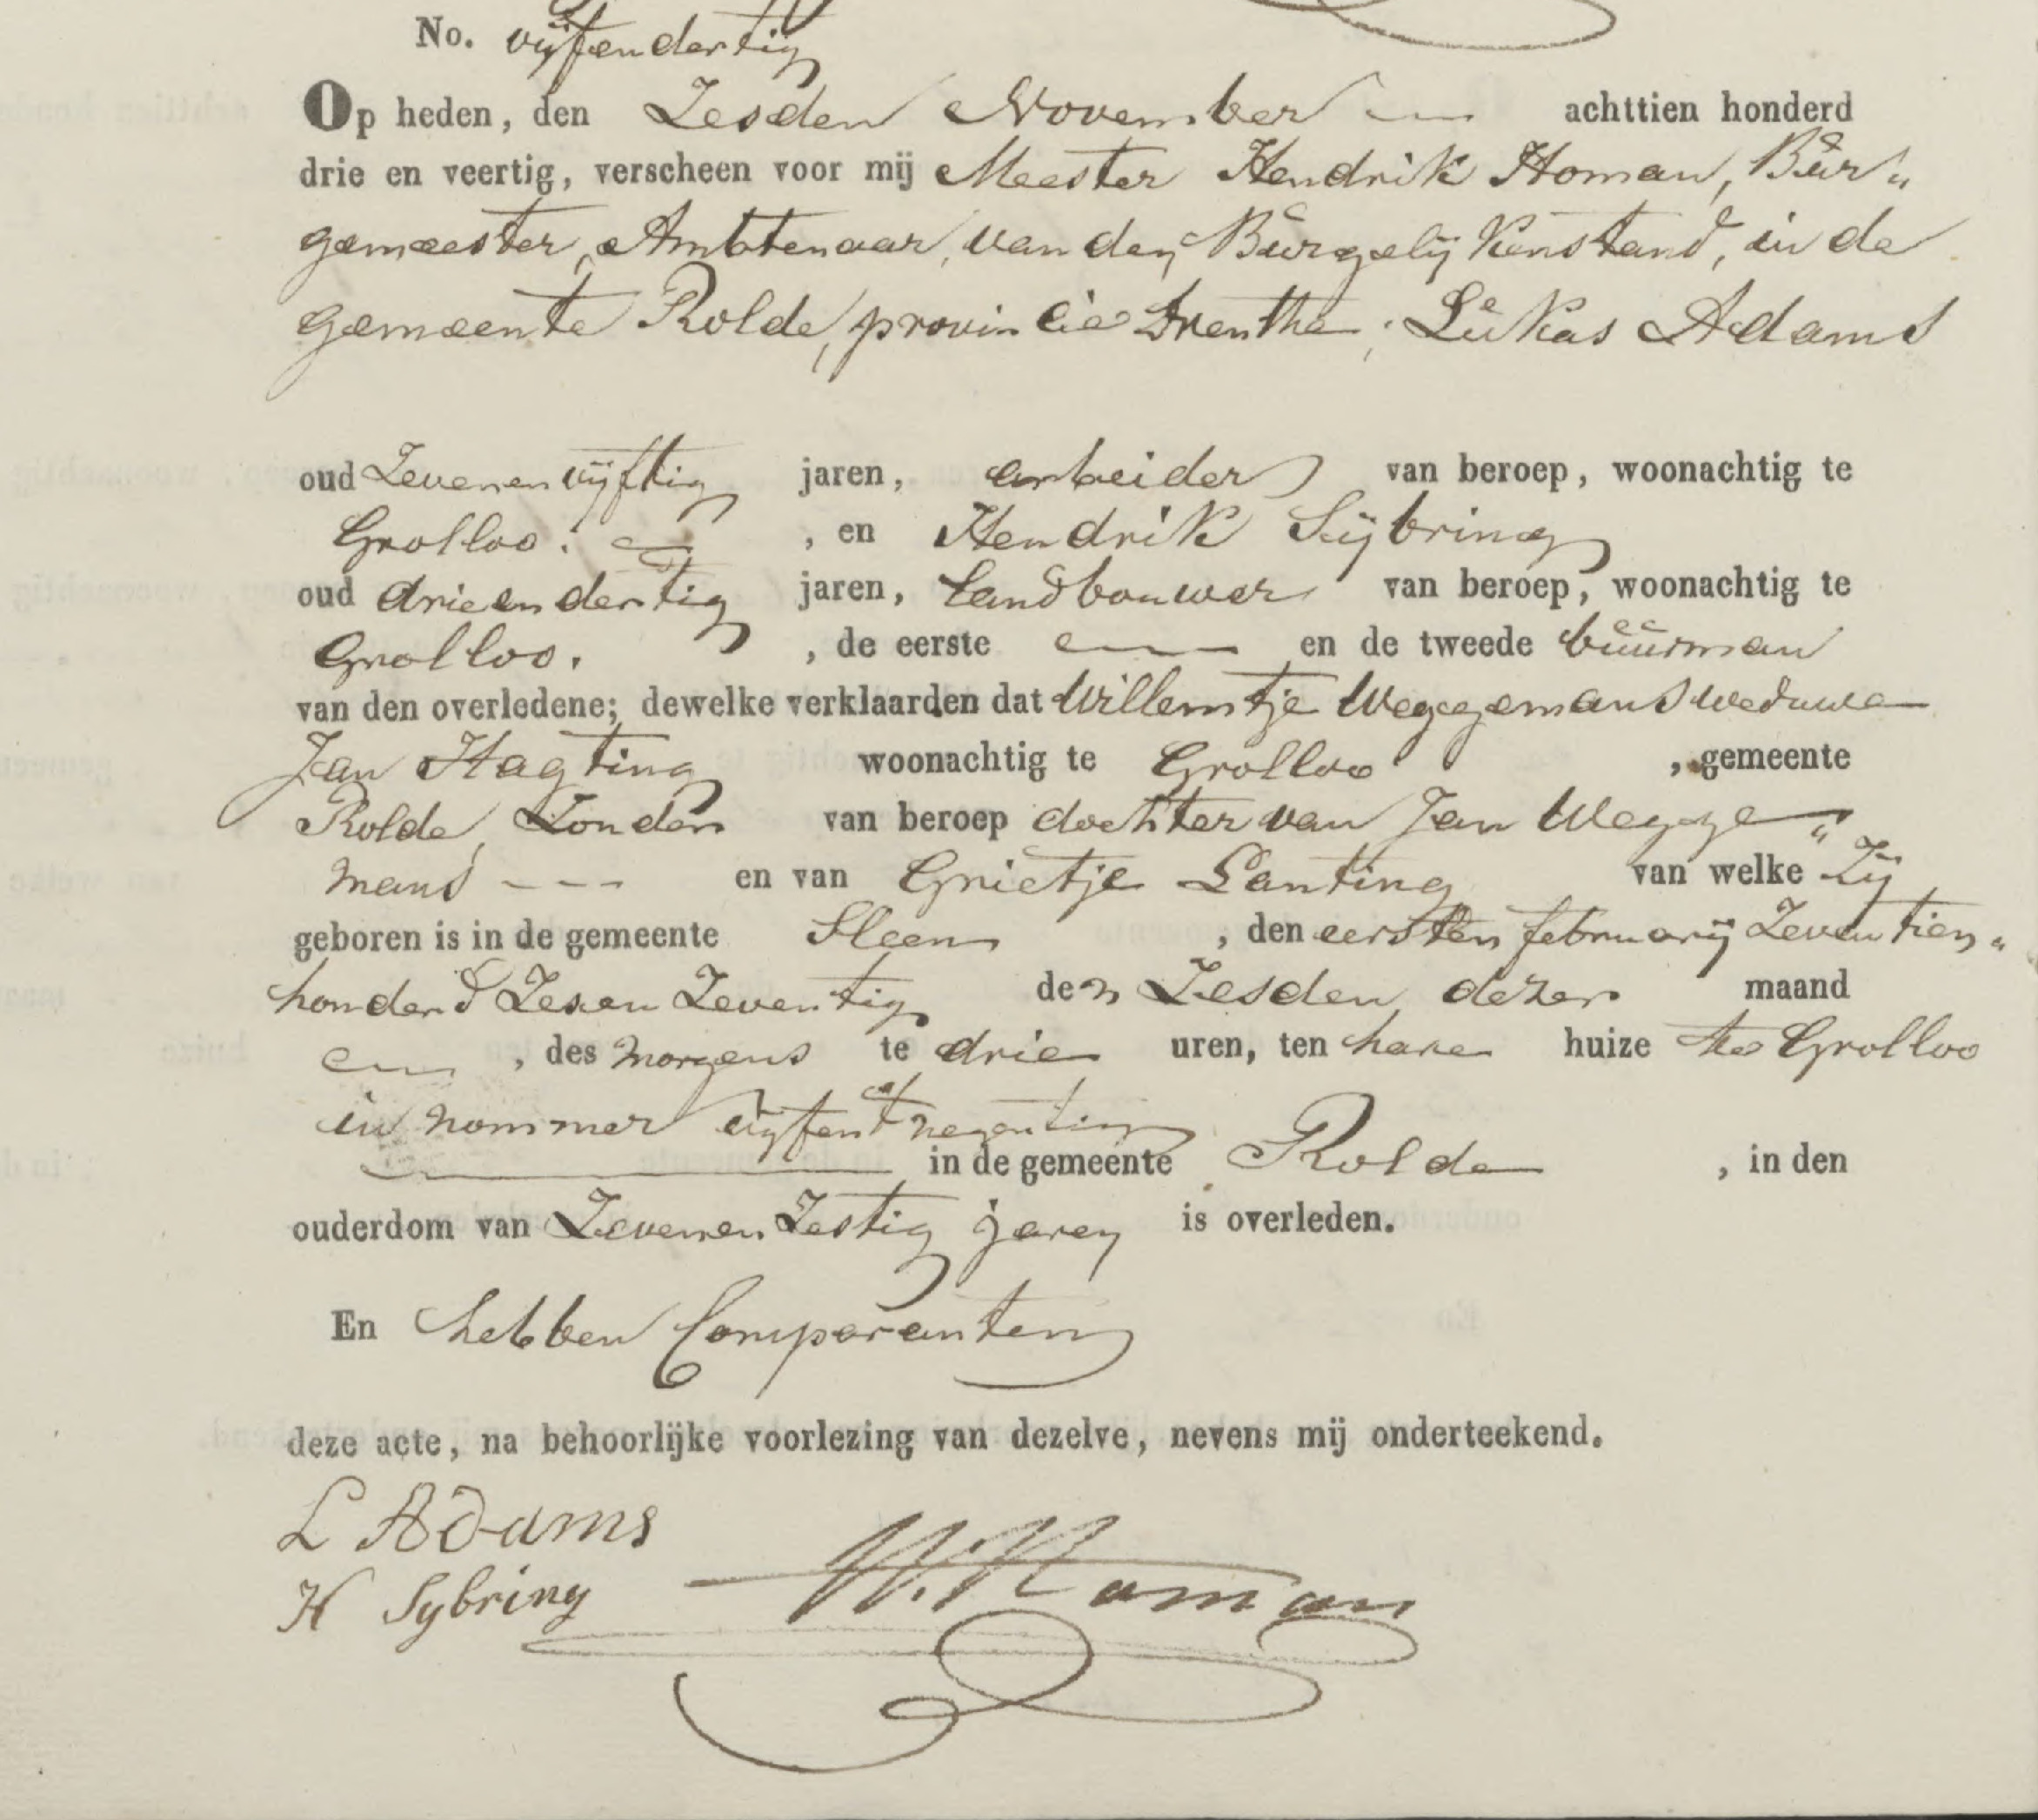 No. vijfendertig
Op heden, den Zesden November achttien honderd
drie en veertig, verscheen voor mij Meester Hendrik Homan, Bur„
gemeester, Ambtenaar, van den Burgelijkenstand, in de
gemeente Rolde, provincie Drenthe, Lukas Adams
oud Zevenenvijftig jaren, arbeider van beroep, woonachtig te
Grolloo. , en Hendrik Sijbring
oud drieendertig jaren, Landbouwer van beroep, woonachtig te
Grolloo. , de eerste en de tweede buurman
van den overledene; dewelke verklaarden dat Willemtje Weggemans weduwe
Jan Hagting woonachtig te Grolloo , gemeente
Rolde, Zonder van beroep dochter van Jan Wegge„
mans - - - en van Grietje Lanting van welke Zij
geboren is in de gemeente Sleen , den eersten februarij Zeventien„
honderd Zesen Zeventig den Zesden dezer maand
, des morgens te drie uren, ten hare huize te Grolloo
in nommer vijfent negentig
in de gemeente Rolde , in den
ouderdom van Zevenen Zestig jaren is overleden.
En hebben Comparanten
deze acte, na behoorlijke voorlezing van dezelve, nevens mij onderteekend.
L Adams
H Sybring H. Homan